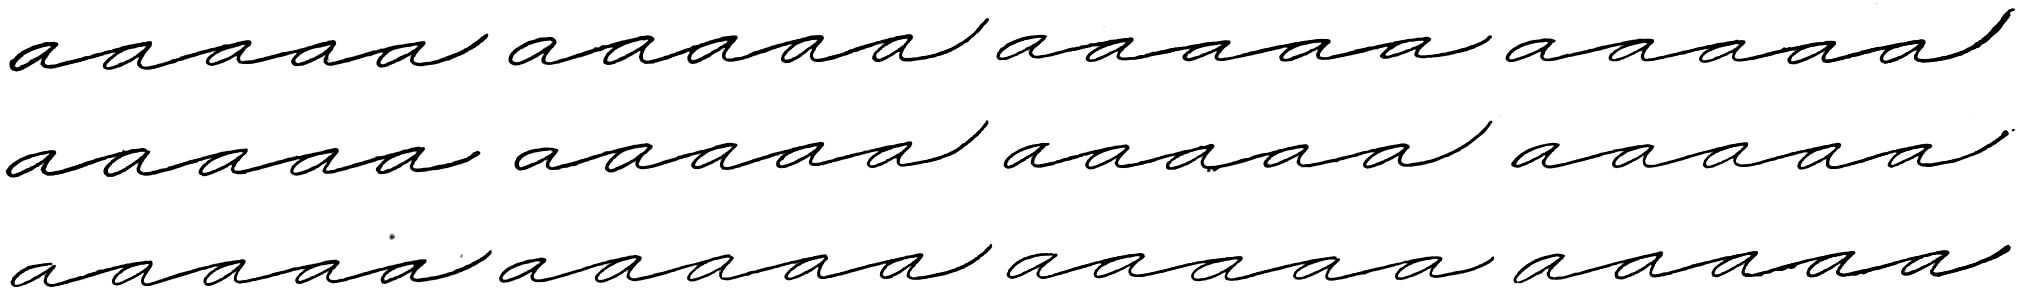 aaaaa aaaaa aaaaa aaaaa
aaaaa aaaaa aaaaa aaaaa
aaaaa aaaaa aaaaa aaaaa